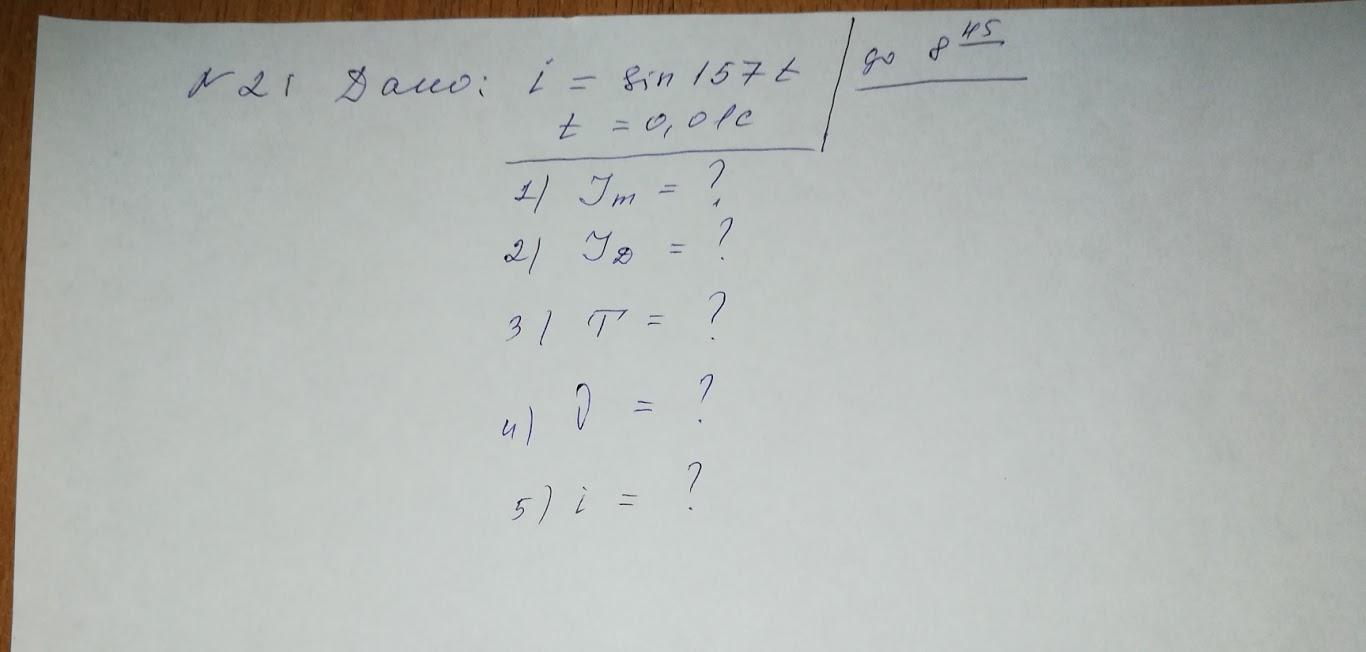 N 21 Дано: i = sin 157 t
t = 0,01c
до 8 45
1) Jm = ?
2) JД = ?
3) T = ?
4) ν = ?
5) i = ?